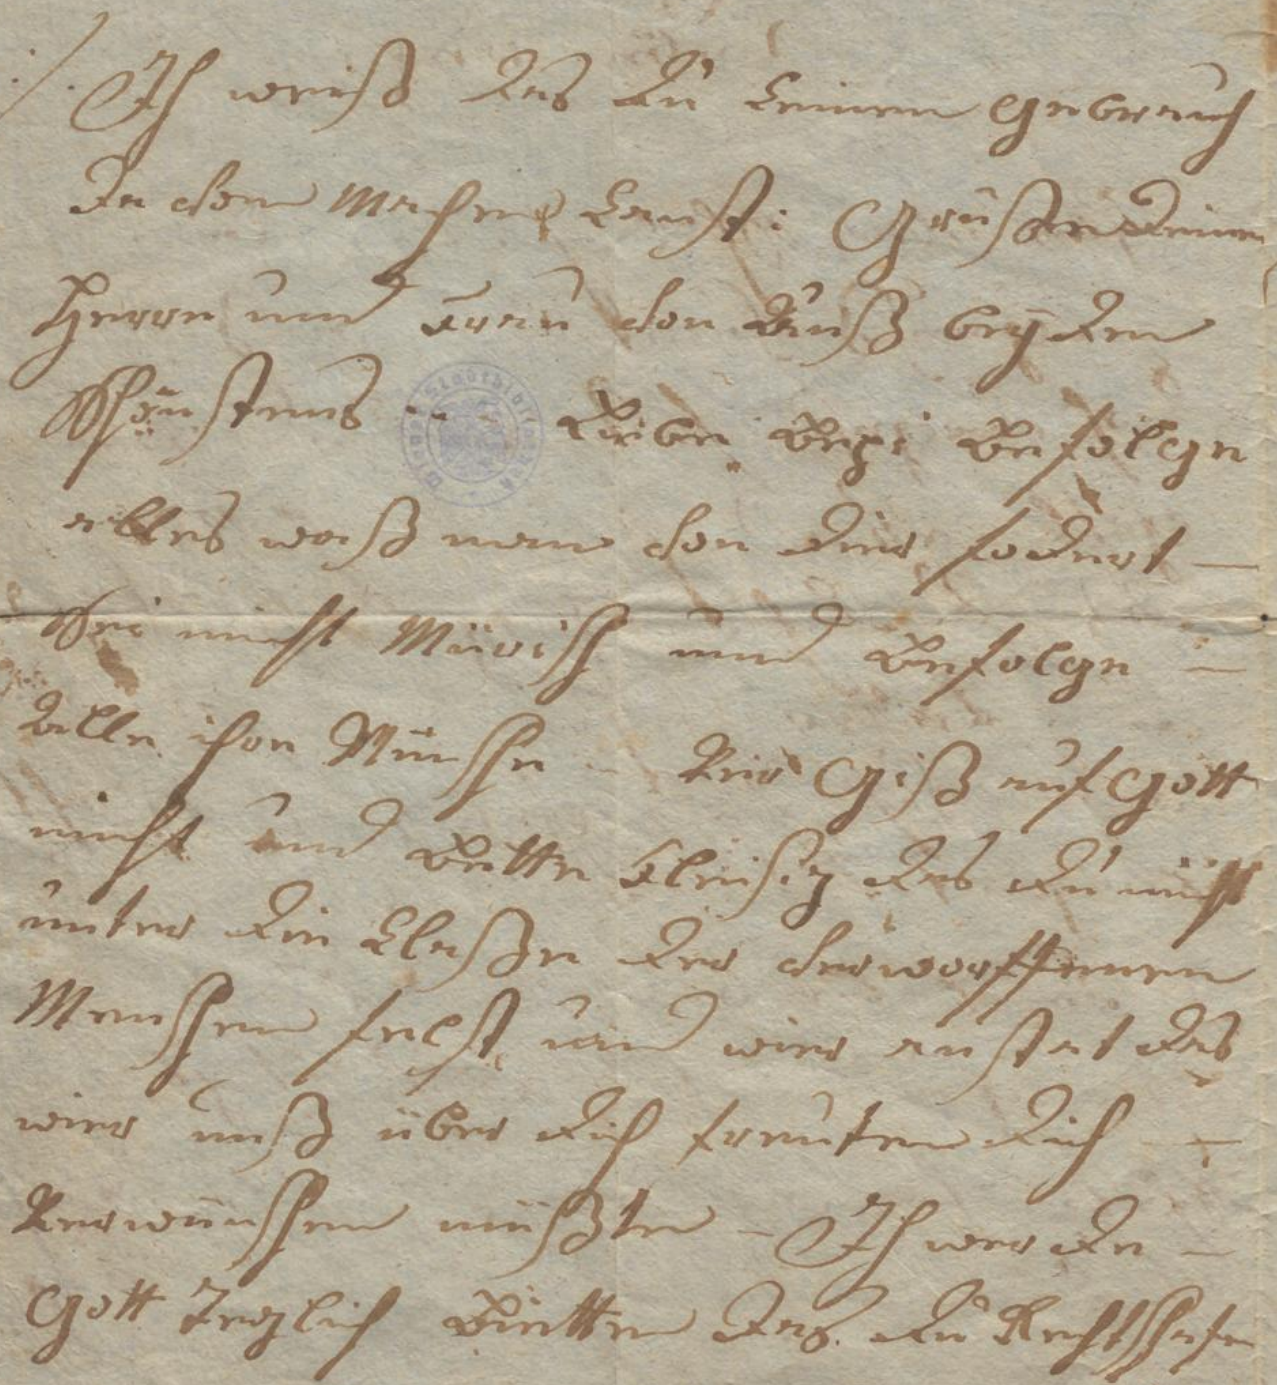 ./. Ich weiß das du keinen gebrauch
da von Machen kanst: Grüße deinen
Herrn und Frau von unß beyden
Schönstens
Liebe Bepi Befolge
alles waß man von dier fodert —
Sei nicht Mürisch und Befolge —
alle ihre Wünsche – Ver Giß auf Gott
nicht und Bette Fleisig das du nicht
unter die Klaße der verworffenen
Menschen felst, und wier anstat das
wier unß über dich freuten dich —
Verwünschen müßten – Ich werde —
Gott Teglich Bietten das du Rechtschafe